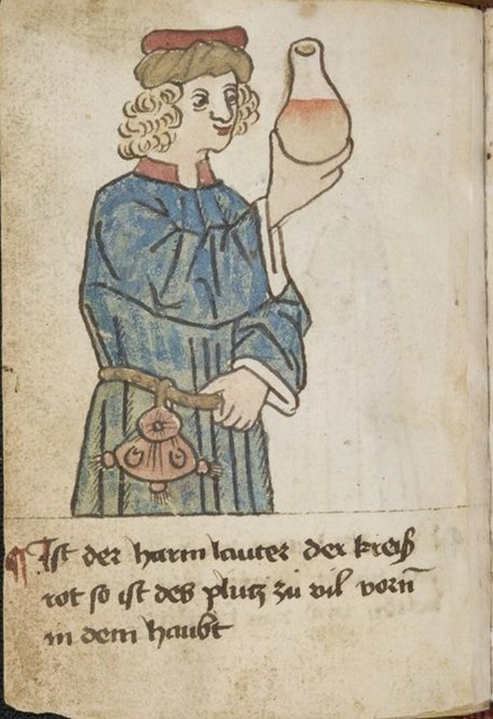 ¶ Ist der harm lauter der kreiß
rot so ist des plutz zu vil vorn̄
in dem haubt